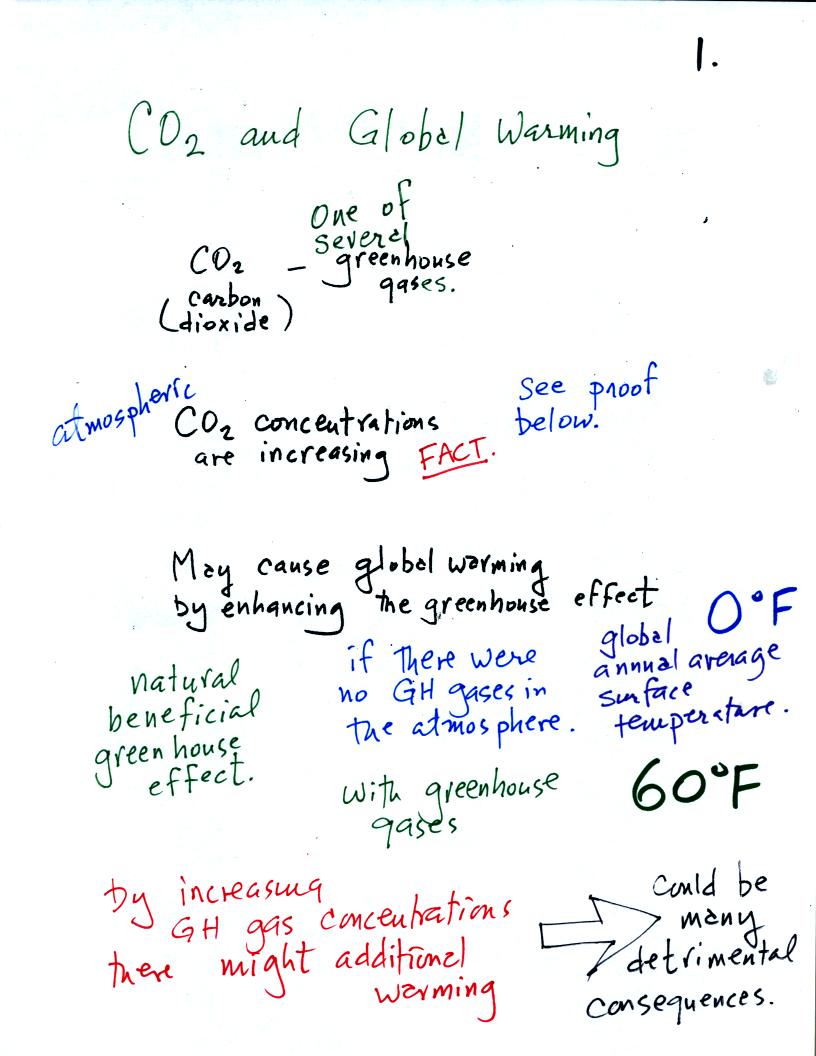 1.
CO₂ and Global Warming
One of
several
CO₂ – greenhouse
gases.
(carbon
dioxide)
atmospheric
CO₂ concentrations
are increasing FACT.
See proof
below.
May cause global warming
by enhancing the greenhouse effect
natural
beneficial
greenhouse
effect.
if there were
no GH gases in
the atmosphere.
0°F
global
annual average
surface
temperature.
with greenhouse
gases
60°F
by increasing
GH gas concentrations
there might additional
warming
Could be
many
detrimental
consequences.